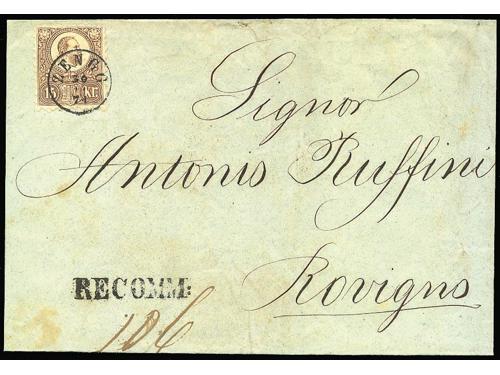 ZENGG
26
71
15 Kr
Signor
Antonio Ruffini
Rovigno
RECOMM:
106